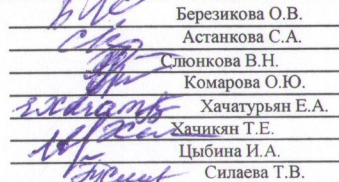 Березикова О.В.
Астанкова С.А.
Слюнкова В.Н.
Комарова О.Ю.
Хачатурьян Е.А.
Хачикян Т.Е.
Цыбина И.А.
Силаева Т.В.